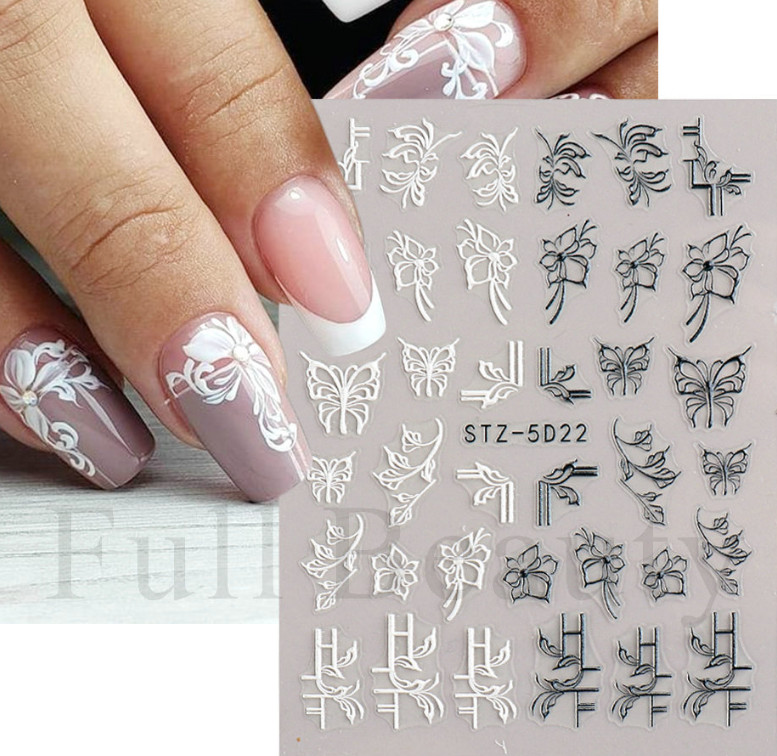 STZ-5D22
Full Beauty